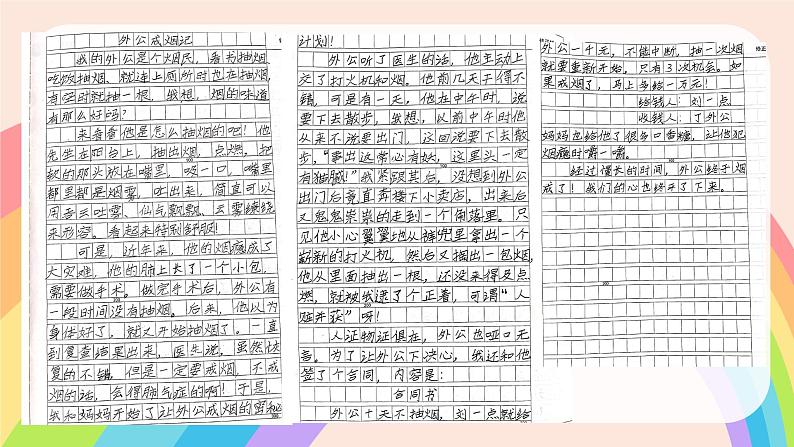 外公戒烟记
我的外公是个烟民，看书抽烟，
吃饭抽烟，就连上厕所时也在抽烟，
有空时就抽一根，我想，烟的味道
有那么好吗？
来看看他是怎么抽烟的吧！他
先坐在阳台上，抽出烟，点燃，把
软的那头放在嘴里，吸一口，嘴里
都里都是烟雾，吐出来，简直可以
用吞云吐雾、仙气飘飘、云雾缭绕
来形容。看起来特别舒服！
可是，近年来，他的烟瘾成了
大灾难，他的肺上长了一个小包，
需要做手术。做完手术后，外公有
一段时间没有抽烟。后来，他以为
身体好了，就又开始抽烟了。一直
到复查结果出来，医生说：虽然恢
复的不错，但是一定要戒烟，不戒
烟的话，会得肺气症的啊！于是，
我和妈妈开始了让外公戒烟的密秘
计划！
外公听了医生的话，他主动上
交了打火机和烟。他前几天干得不
错，可是有一天，他在中午时，说
要下去散步，我想，以前中午时他
从来不说要出门，这回说要下去散
步，“事出反常必有妖，这里头一定
有猫腻！”我紧跟其后，没想到外公
出门后竟直奔楼下小卖店，出来后
又鬼鬼祟祟的走到一个角落里。只
见他小心翼翼地从裤兜里拿出一个
崭新的打火机，然后又掏出一包烟，
他从里面抽出一根，还没来得及点
燃，就被我逮了个正着，可谓“人
赃并获”呀！
人证物证俱在，外公也哑口无
言。为了让外公下决心，我还和他
签了个合同，内容是：
合同书
外公十天不抽烟，刘一点就给
外公一千元，不能中断，抽一次烟
就要重新开始，只有3次机会。如
果戒烟了，马上多给一万元！
给钱人：刘一点
收钱人：丁外公
妈妈也给他了很多口香糖，让他犯
烟瘾时嚼一嚼。
经过漫长的时间，外公终于烟
戒了！我们的心也终于了下来。